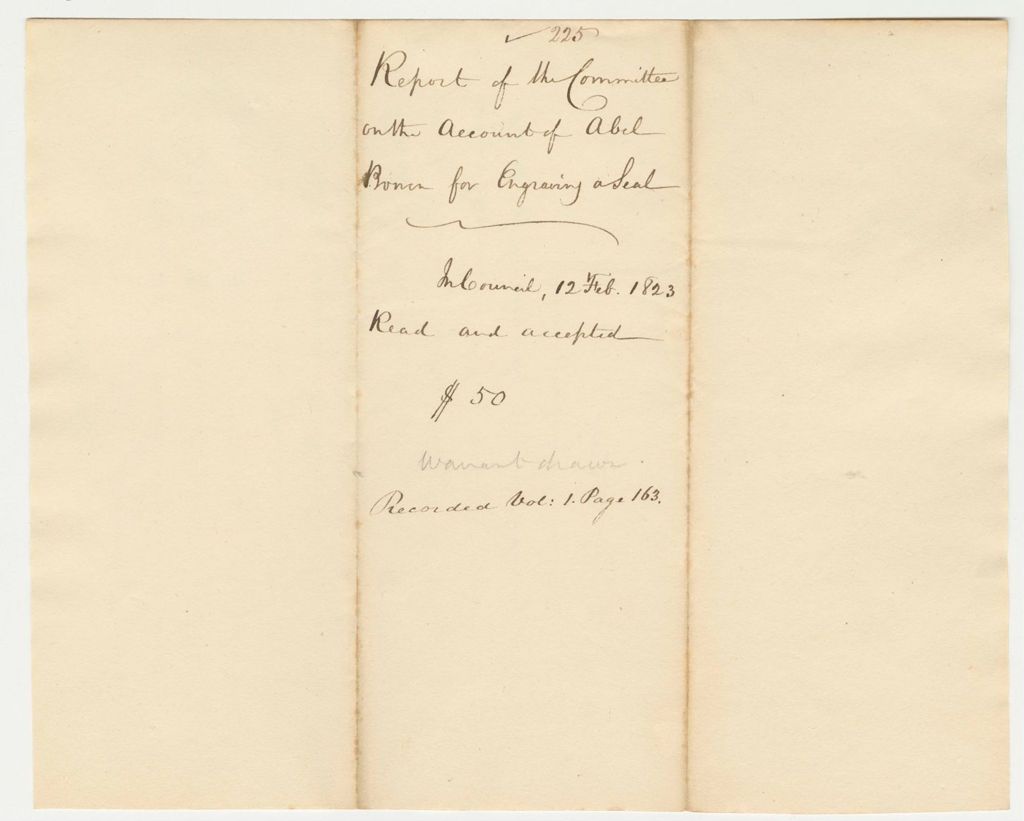 ✓ 225
Report of the Committee
on the Account of Abel
Bowen for Engraving a Seal
In Council, 12 Feb. 1823
Read and accepted
$ 50
Warrant drawn
Recorded Vol: 1. Page 163.